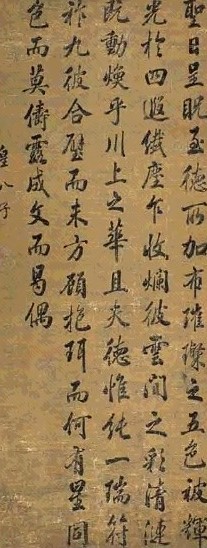 聖日呈貺至德所加布璀璨之五色被輝
光於四遐纖塵乍收爛彼雲間之彩清漣
既動煥乎川上之華且夫德惟純一瑞符
祚九彼合璧而未方顧抱珥而何有星同
色而莫儔露成文而曷偶
皇八子